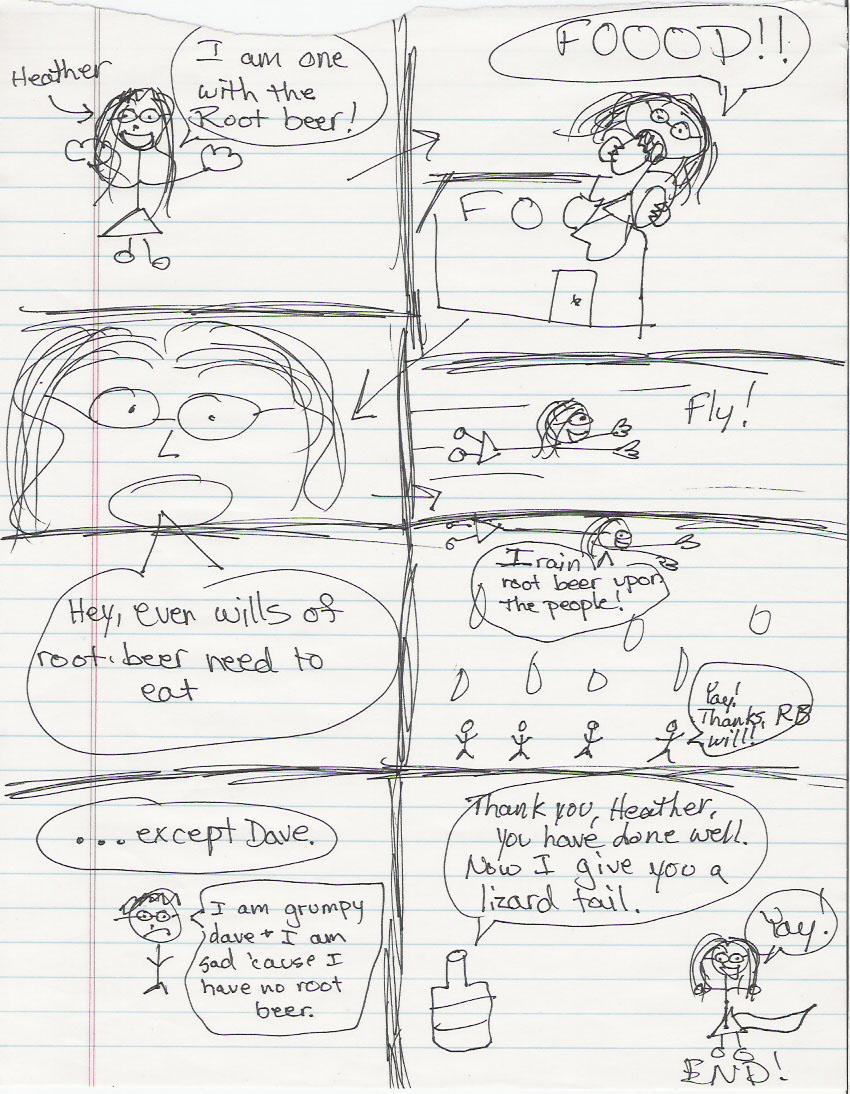 Heather
I am one
with the
Root beer!
FOOOD!!
FO
Hey, even wills of
root beer need to
eat
Fly!
I rain
root beer upon
the people!
Yay!
Thanks, RB
will!
...except Dave.
I am grumpy
dave + I am
sad 'cause I
have no root
beer.
Thank you, Heather,
you have done well.
Now I give you a
lizard tail.
Yay!
END!